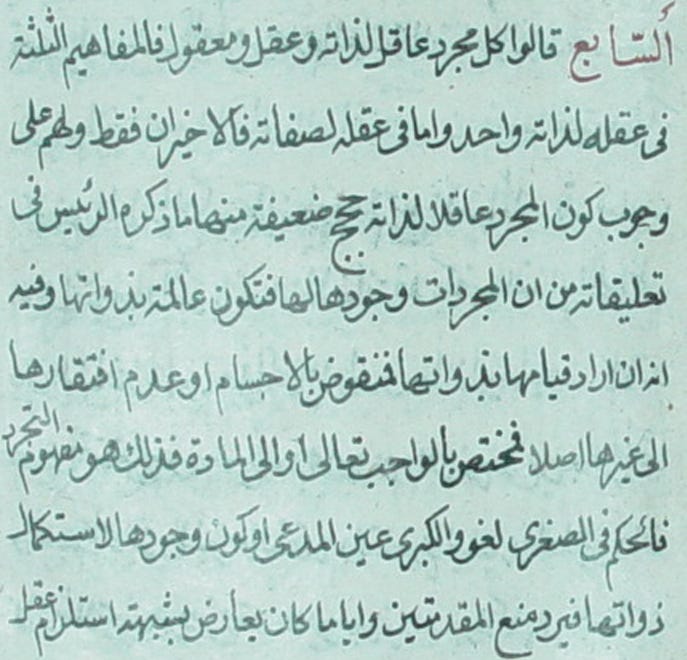 ألسّابع قالوا كل مجرد عاقل لذاته وعقل ومعقول فالمفاهيم الثلثة
فى عقله لذاته واحد واما فى عقله لصفاته فالاخيران فقط ولهم على
وجوب كون المجرد عاقلا لذاته حجج ضعيفة منها ما ذكره الرئيس فى
تعليقاته من ان المجردات وجودها لها فتكون عالمة بذواتها وفيه
انه ان اراد قيامها بذواتها فمنقوض بالاجسام او عدم افتقارها
الى غيرها اصلا فمختص بالواجب تعالى او الى المادة فذلك هو مفهوم التجرد
فالحكم فى الصغرى لغو والكبرى عين المدعى او كون وجودها لاستكمال
ذواتها فيرد منع المقدمتين وايا ما كان يعارض بشبهة استلزام عقل